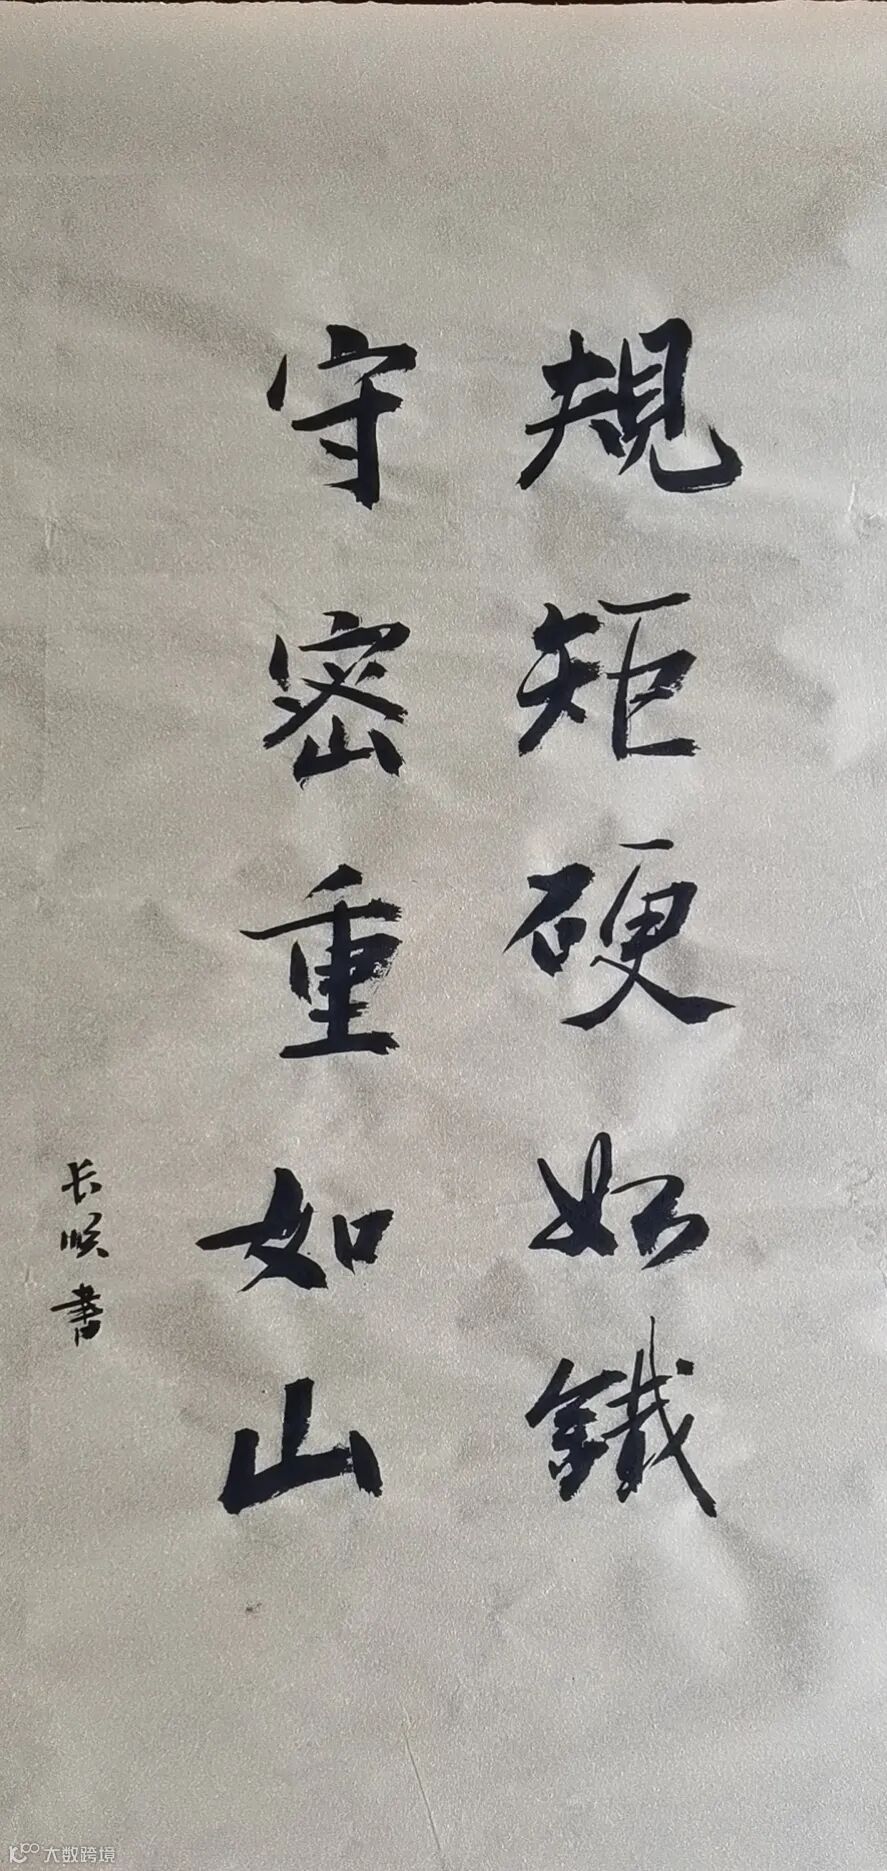 規矩硬如鐵
守密重如山
长顺書
大数跨境